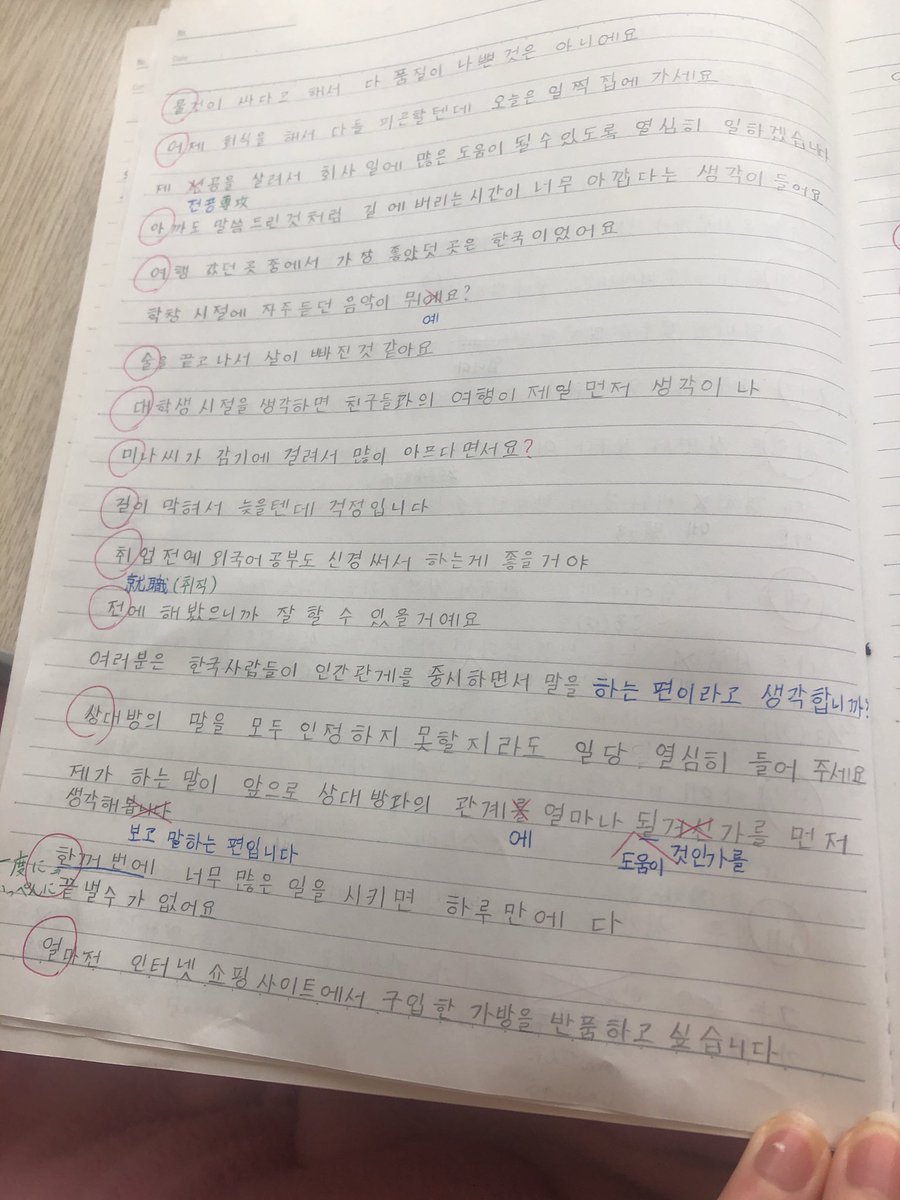 물건이 싸다고 해서 다 품질이 나쁜 것은 아니에요
어제 회식을 해서 다들 피곤할텐데 오늘은 일찍 집에 가세요
제 공을 살려서 회사 일에 많은 도움이 될 수 있도록 열심히 일하겠습니다
전공 専攻
아까도 말씀드린 것처럼 길에 버리는 시간이 너무 아깝다는 생각이 들어요
여행 갔던 곳 중에서 가장 좋았덧 곳은 한국이었어요
학창 시절에 자주 듣던 음악이 뭐에요?
예
술을 끝고 나서 살이 빠진 것 같아요
대학생 시절을 생각하면 친구들과의 여행이 제일 먼저 생각이 나
미나씨가 감기에 걸려서 많이 아프다면서요?
길이 막혀서 늦을텐데 걱정입니다
취업전에 외국어 공부도 신경써서 하는게 좋을거야
就職 (취직)
전에 해봤으니까 잘 할 수 있을거예요
여러분은 한국사람들이 인간관계를 중시하면서 말을 하는 편이라고 생각합니까?
상대방의 말을 모두 인정하지 못할지라도 일당 열심히 들어 주세요
제가 하는 말이 앞으로 상대방과의 관계를 얼마나 될 가를 먼저
에 도움이 것인가를
생각해봅니다
보고 말하는 편입니다
한꺼번에 너무 많은 일을 시키면 하루만에 다
一度に
끝낼수가 없어요
얼마전 인터넷 쇼핑사이트에서 구입한 가방을 반품하고 싶습니다